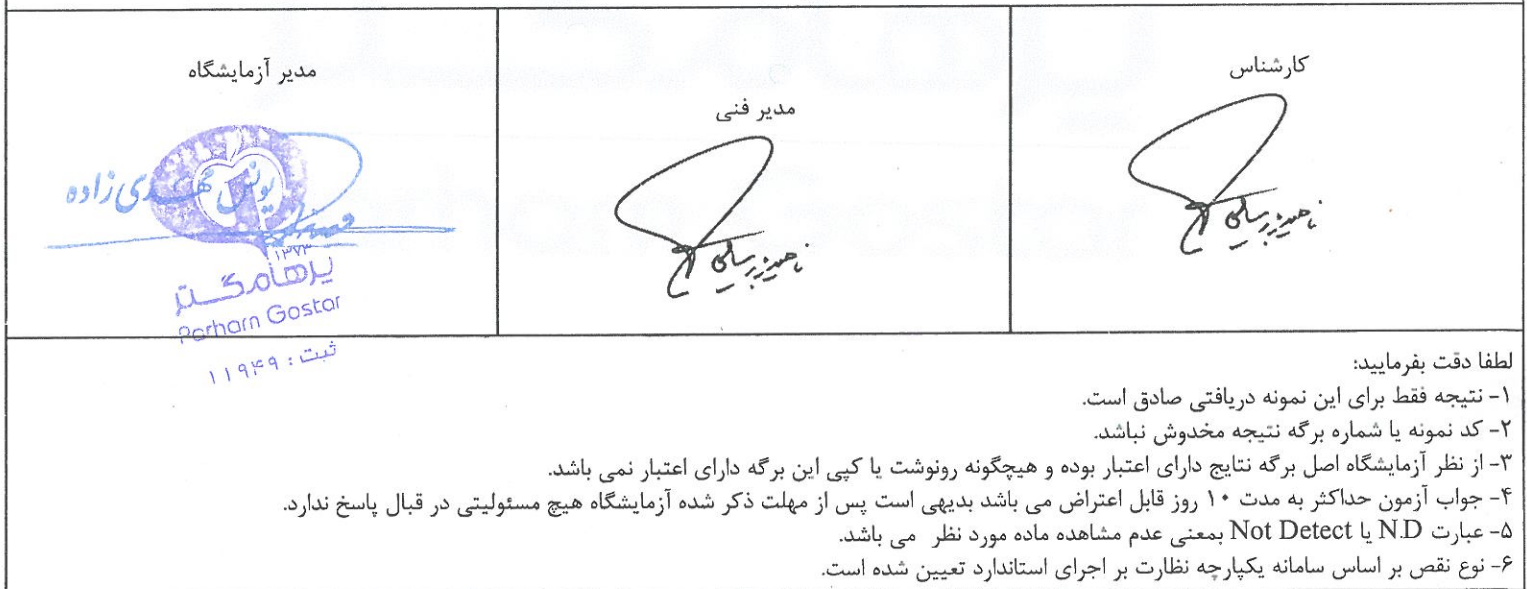 کارشناس
مدیر فنی
مدیر آزمایشگاه
یونس مهدی زاده
۱۳۷۳
پرهام گستر
Parham Gostar
ثبت : ۱۱۹۴۹
لطفا دقت بفرمایید:
۱- نتیجه فقط برای این نمونه دریافتی صادق است.
۲- کد نمونه یا شماره برگه نتیجه مخدوش نباشد.
۳- از نظر آزمایشگاه اصل برگه نتایج دارای اعتبار بوده و هیچگونه رونوشت یا کپی این برگه دارای اعتبار نمی باشد.
۴- جواب آزمون حداکثر به مدت ۱۰ روز قابل اعتراض می باشد بدیهی است پس از مهلت ذکر شده آزمایشگاه هیچ مسئولیتی در قبال پاسخ ندارد.
۵- عبارت N.D یا Not Detect بمعنی عدم مشاهده ماده مورد نظر می باشد.
۶- نوع نقص بر اساس سامانه یکپارچه نظارت بر اجرای استاندارد تعیین شده است.